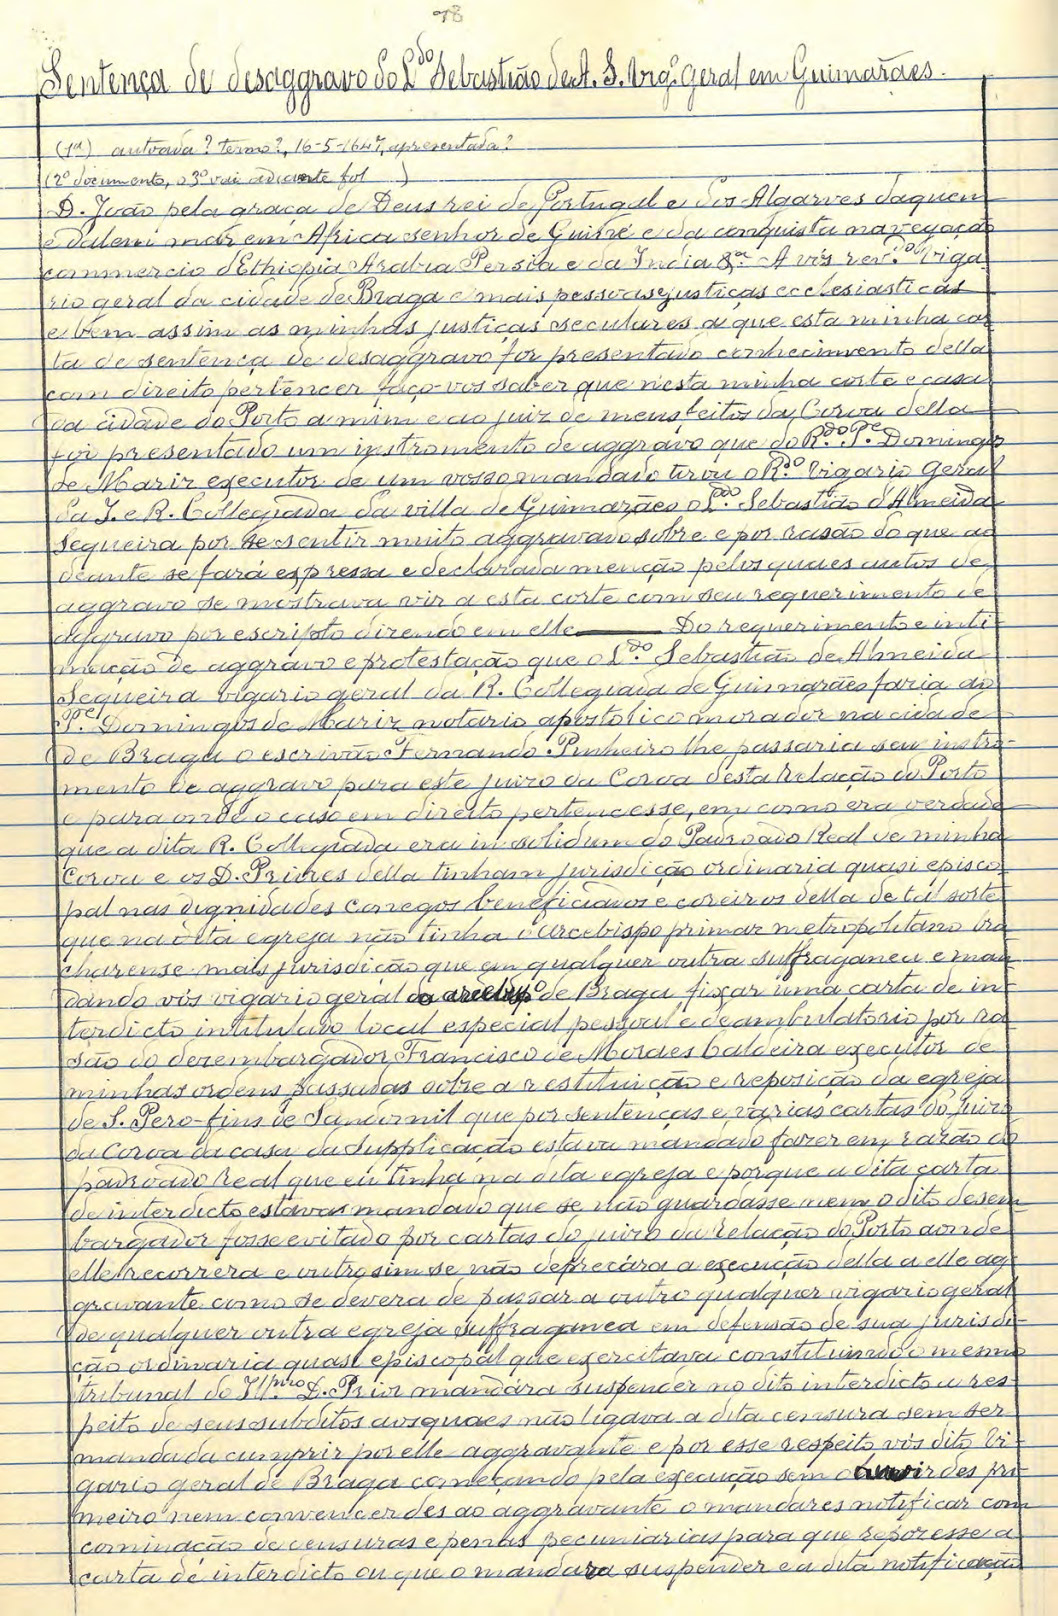 78
Sentença de desaggravo do L.do Sebastião de A. S. Vig.º Geral em Guimarães.
(1ª) autoada? termo?, 16-5-1647, apresentada?
(2º documento, o 3º vai adeante fol )
D. João pela graça de Deus rei de Portugal e dos Algarves daquem
e dalem mar em Africa senhor de Guiné e da conquista navegação
commercio d'Ethiopia Arabia Persia e da India &ª A vós rev.do Viga
rio geral da cidade de Braga e mais pessoas e justiças ecclesiasticas
e bem assim as minhas justiças seculares a que esta minha car
ta de sentença de desaggravo for presentado conhecimento della
com direito pertencer faço-vos saber que n'esta minha corte e casa
da cidade do Porto a mim e ao juiz de meus feitos da Coroa della
foi presentado um instromento de aggravo que do R.do P.e Domingos
de Mariz executor de um vosso mandado tirou o R.do Vigario Geral
da I. e R. Collegiada da villa de Guimarães o L.do Sebastião d'Almeida
Sequeira por se sentir muito aggravado sobre e por rasão do que ao
deante se fará expressa e declarada menção pelos quaes autos de
aggravo se mostrava vir a esta corte com seu requerimento de
aggravo por escripto dizendo em elle——— Do requerimento e inti-
mação de aggravo e protestação que o L.do Sebastião de Almeida
Sequeira vigario geral da R. Collegiada de Guimarães faria ao
P.e Domingos de Mariz notario apostolico morador na cidade
de Braga o escrivão Fernando Pinheiro lhe passaria seu instro-
mento de aggravo para este juizo da Coroa desta Relação do Porto
e para onde o caso em direito pertencesse, em como era verdade
que a dita R. Collegiada era in solidum do Padroado Real de minha
Coroa e os D. Priores della tinham jurisdição ordinaria quasi episco-
pal nas dignidades conegos beneficiados e coreiros della de tal sorte
que na dita egreja não tinha o arcebispo primaz metropolitano bra
charense mais jurisdicção que em qualquer outra suffraganea e man
dando vós vigario geral de Braga fixar uma carta de in-
terdicto intitulado local especial pessoal e deambulatorio por ra
são do dezembargador Francisco de Moraes Caldeira executor de
minhas ordens passadas sobre a restituição e reposição da egreja
de S. Pero-fins de Tandornil que por sentenças e varias cartas do juizo
da Coroa da casa da Supplicação estava mandado fazer em razão do
padroado Real que eu tinha na dita egreja e porque a dita carta
de interdicto estava mandado que se não guardasse nem o dito desem
bargador fosse evitado por cartas do juizo da Relação do Porto aonde
elle recorrera e outrosim se não deprecára a execução della a elle ag-
gravante como se devera de passar a outro qualquer vigario geral
de qualquer outra egreja suffraganea em defensão de sua jurisdi-
ção ordinaria quasi episcopal que exercitava constituindo o mesmo
tribunal do Ill.mo D. Prior mandára suspender no dito interdicto a res-
peito de seus subditos aos quaes não ligava a dita censura sem ser
mandada cumprir por elle aggravante e por esse respeito vós dito Vi-
gario geral de Braga começando pela execução sem o ouvirdes pri-
meiro nem convencerdes ao aggravante o mandares notificar com
cominação de censuras e penas pecuniarias para que repozesse a
carta de interdicto ou que o mandara suspender e a dita notificação